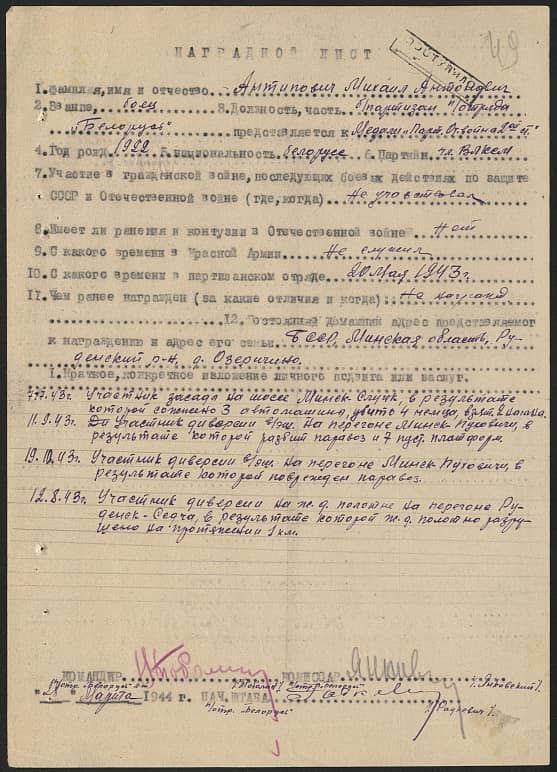 49
ПОСТУПИЛО
НАГРАДНОЙ ЛИСТ
1. Фамилия, имя и отчество Антипович Михаил Антонович
2. Звание, боец 3. Должность, часть партизан "отряда
"Беларусь" представляется к Медали "Парт. От. война 2ой ст."
4. Год рожд. 1922 5. Национальность белорусс 6. Партийн. чл. ВЛКСМ
7. Участие в гражданской войне, последующих боевых действиях по защите
СССР и Отечественной войне (где, когда) Не участвовал
8. Имеет ли ранения и контузии в Отечественной войне Нет
9. С какого времени в Красной Армии Не служил
10. С какого времени в партизанском отряде 20 Мая 1943 г.
11. Чем ранее награжден (за какие отличия и когда) Не награжд.
12. Постоянный домашний адрес представляемог
к награждению и адрес его семьи БССР, Минская область, Ру-
денский р-н, д. Озеричино.
1. Краткое, конкретное изложение личного подвига или заслуг.
7.7.43г. Участник засады на шоссе Минск Слуцк, в результате
которой сожжено 3 автомашины, убито 4 немца, взят. 2 нагана.
11.9.43г. Участник диверсии в/эш. на перегоне Минск-Пуховичи, в
результате которой разбит паравоз и 7 пуст. платформ.
19.10.43г. Участник диверсии в/эш. на перегоне Минск Пуховичи, в
результате которой поврежден паравоз.
12.8.43г. Участник диверсии на ж.д. полотне на перегоне Ру-
денск-Седча, в результате которой ж.д. полотно разру-
шено на протяжении 1 км.
КОМАНДИР КОМИССАР
/Янковский/
Марта 1944 г. НАЧ. ШТАБА
отр. "Беларусь" /Рацкевич/